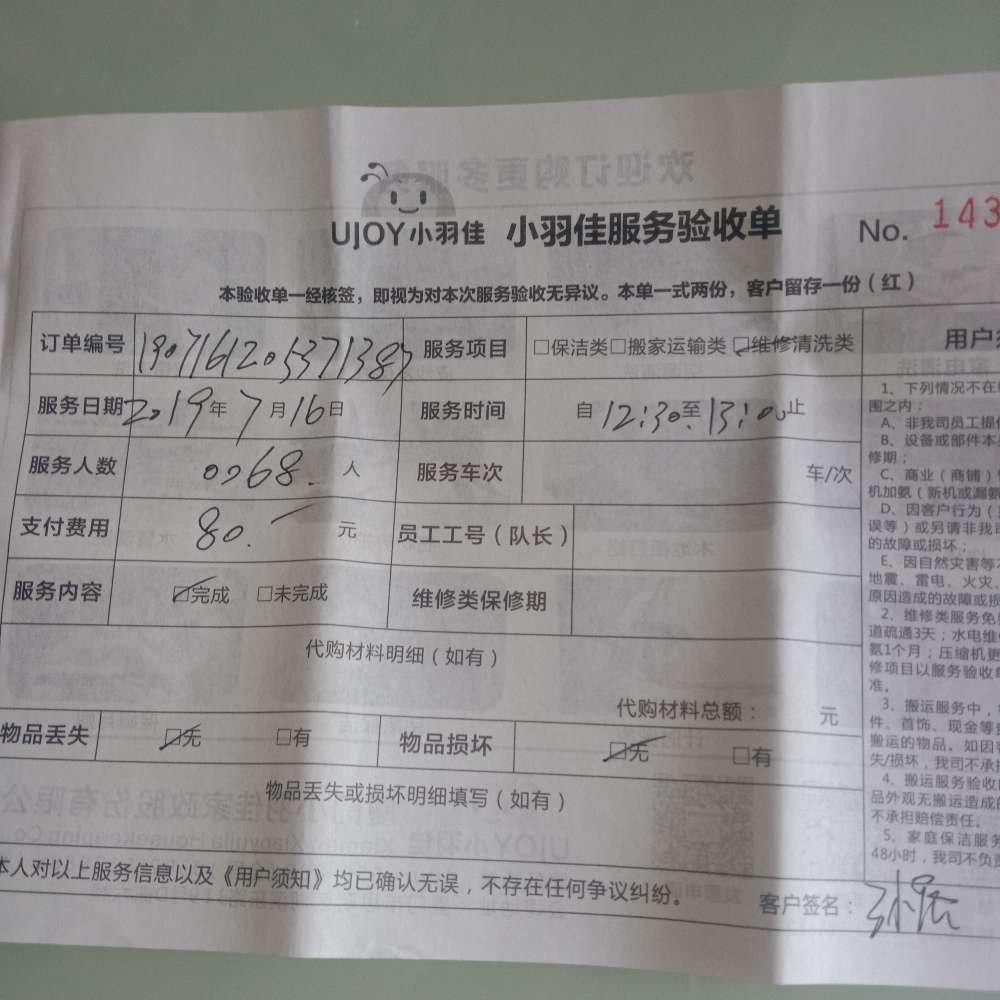 UJOY小羽佳 小羽佳服务验收单 No. 143
本验收单一经核签，即视为对本次服务验收无异议。本单一式两份，客户留存一份（红）
订单编号 190716120537138 服务项目 □保洁类□搬家运输类☑维修清洗类
服务日期 2019年7月16日 服务时间 自12:30至13:00止
服务人数 0068. 人 服务车次 车/次
支付费用 80. 元 员工工号（队长）
服务内容 ☑完成 □未完成 维修类保修期
代购材料明细（如有）
代购材料总额： 元
物品丢失 ☑无 □有 物品损坏 ☑无 □有
物品丢失或损坏明细填写（如有）
本人对以上服务信息以及《用户须知》均已确认无误，不存在任何争议纠纷。
客户签名：
用户
1、下列情况不在
围之内：
A、非我司员工提
B、设备或部件本
修期；
C、商业（商铺）
机加氨（新机或漏氨
D、因客户行为（
误等）或另请非我司
的故障或损坏；
E、因自然灾害等
地震、雷电、火灾
原因造成的故障或损
2、维修类服务免
道疏通3天；水电维
氨1个月；压缩机更
修项目以服务验收单
准。
3、搬运服务中，
件、首饰、现金等
搬运的物品。如因客
失/损坏，我司不承担
4、搬运服务验收
品外观无搬运造成的
不承担赔偿责任。
5、家庭保洁服务
48小时，我司不负责